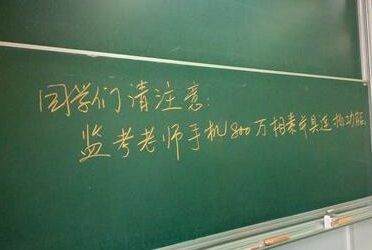 同学们请注意:
监考老师手机800万相素并具连拍功能